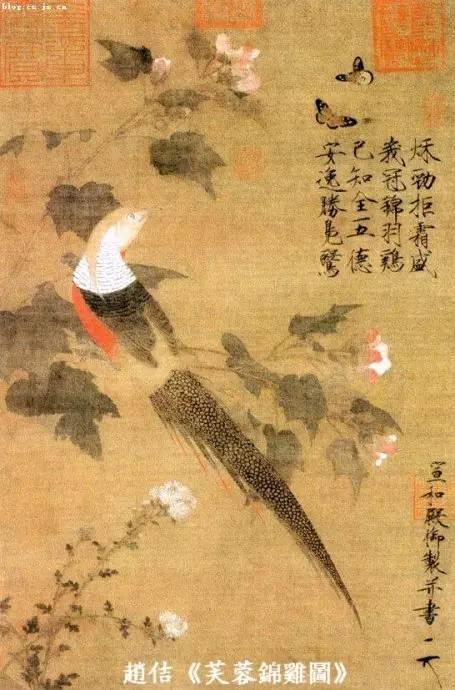 秌勁拒霜盛
峩冠錦羽鷄
已知全五德
安逸勝鳧鷖
宣和殿御製并書
趙佶《芙蓉錦雞圖》